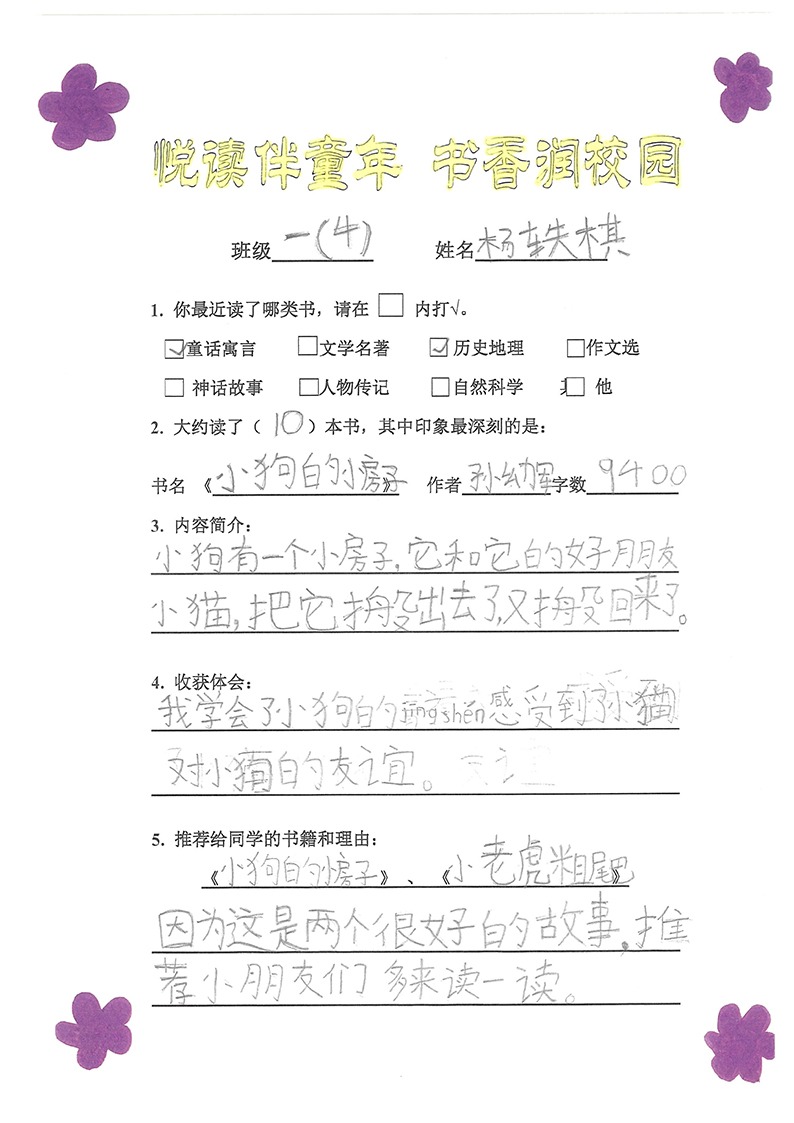 悦读伴童年 书香润校园
班级 一(4) 姓名 杨轶棋
1. 你最近读了哪类书，请在 □ 内打√。
☑童话寓言 □文学名著 ☑历史地理 □作文选
□ 神话故事 □人物传记 □自然科学 □ 他
2. 大约读了（10）本书，其中印象最深刻的是：
书名《小狗的小房子》 作者 孙幼军 字数 9400
3. 内容简介：
小狗有一个小房子，它和它的好朋友
小猫，把它搬出去了，又搬回来了。
4. 收获体会：
我学会了小狗的jīng shén感受到了小猫
对小猫的友谊。
5. 推荐给同学的书籍和理由：
《小狗的小房子》、《小老虎粗尾巴》
因为这是两个很好的故事，推
荐小朋友们多来读一读。